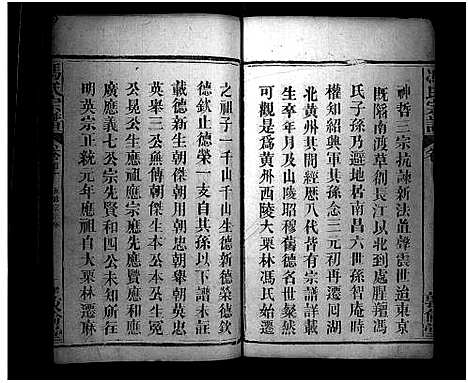 神哲三宗抗諫新法直聲震世迨東京
既陷南渡草創長江以北到處腥羶馮
氏子孫乃避地居南昌六世孫智庵時
權知紹興軍其孫念三元初再遷囘湖
北黃州其間經歷八代皆有宗譜詳載
生卒年月及山陵昭穆舊德名世燦然
可觀是爲黃州西陵大栗林馮氏始遷
之祖子一千山千山生德新德榮德欽
德欽止德榮一支自其孫以下譜未註
德新生朝傑朝用朝忠朝舉朝英
英舉三公無傳朝傑生本本公生冕
公晃公生應祖應宗先應費應和應
廣應義七公宗先賢和四公未知所行
明英宗正統元年應祖自大栗林遷麻
馮氏宗譜